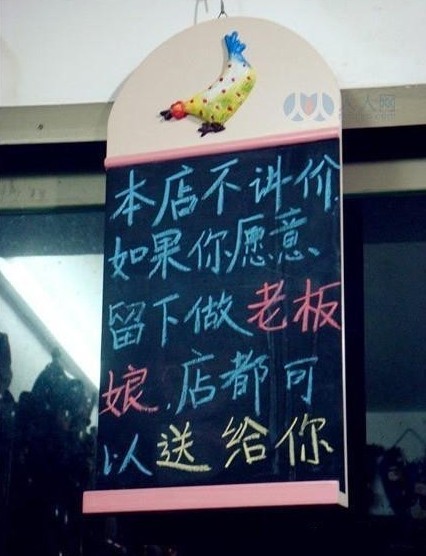 人人网
本店不讲价
如果你愿意、
留下做老板
娘.店都可
以送给你